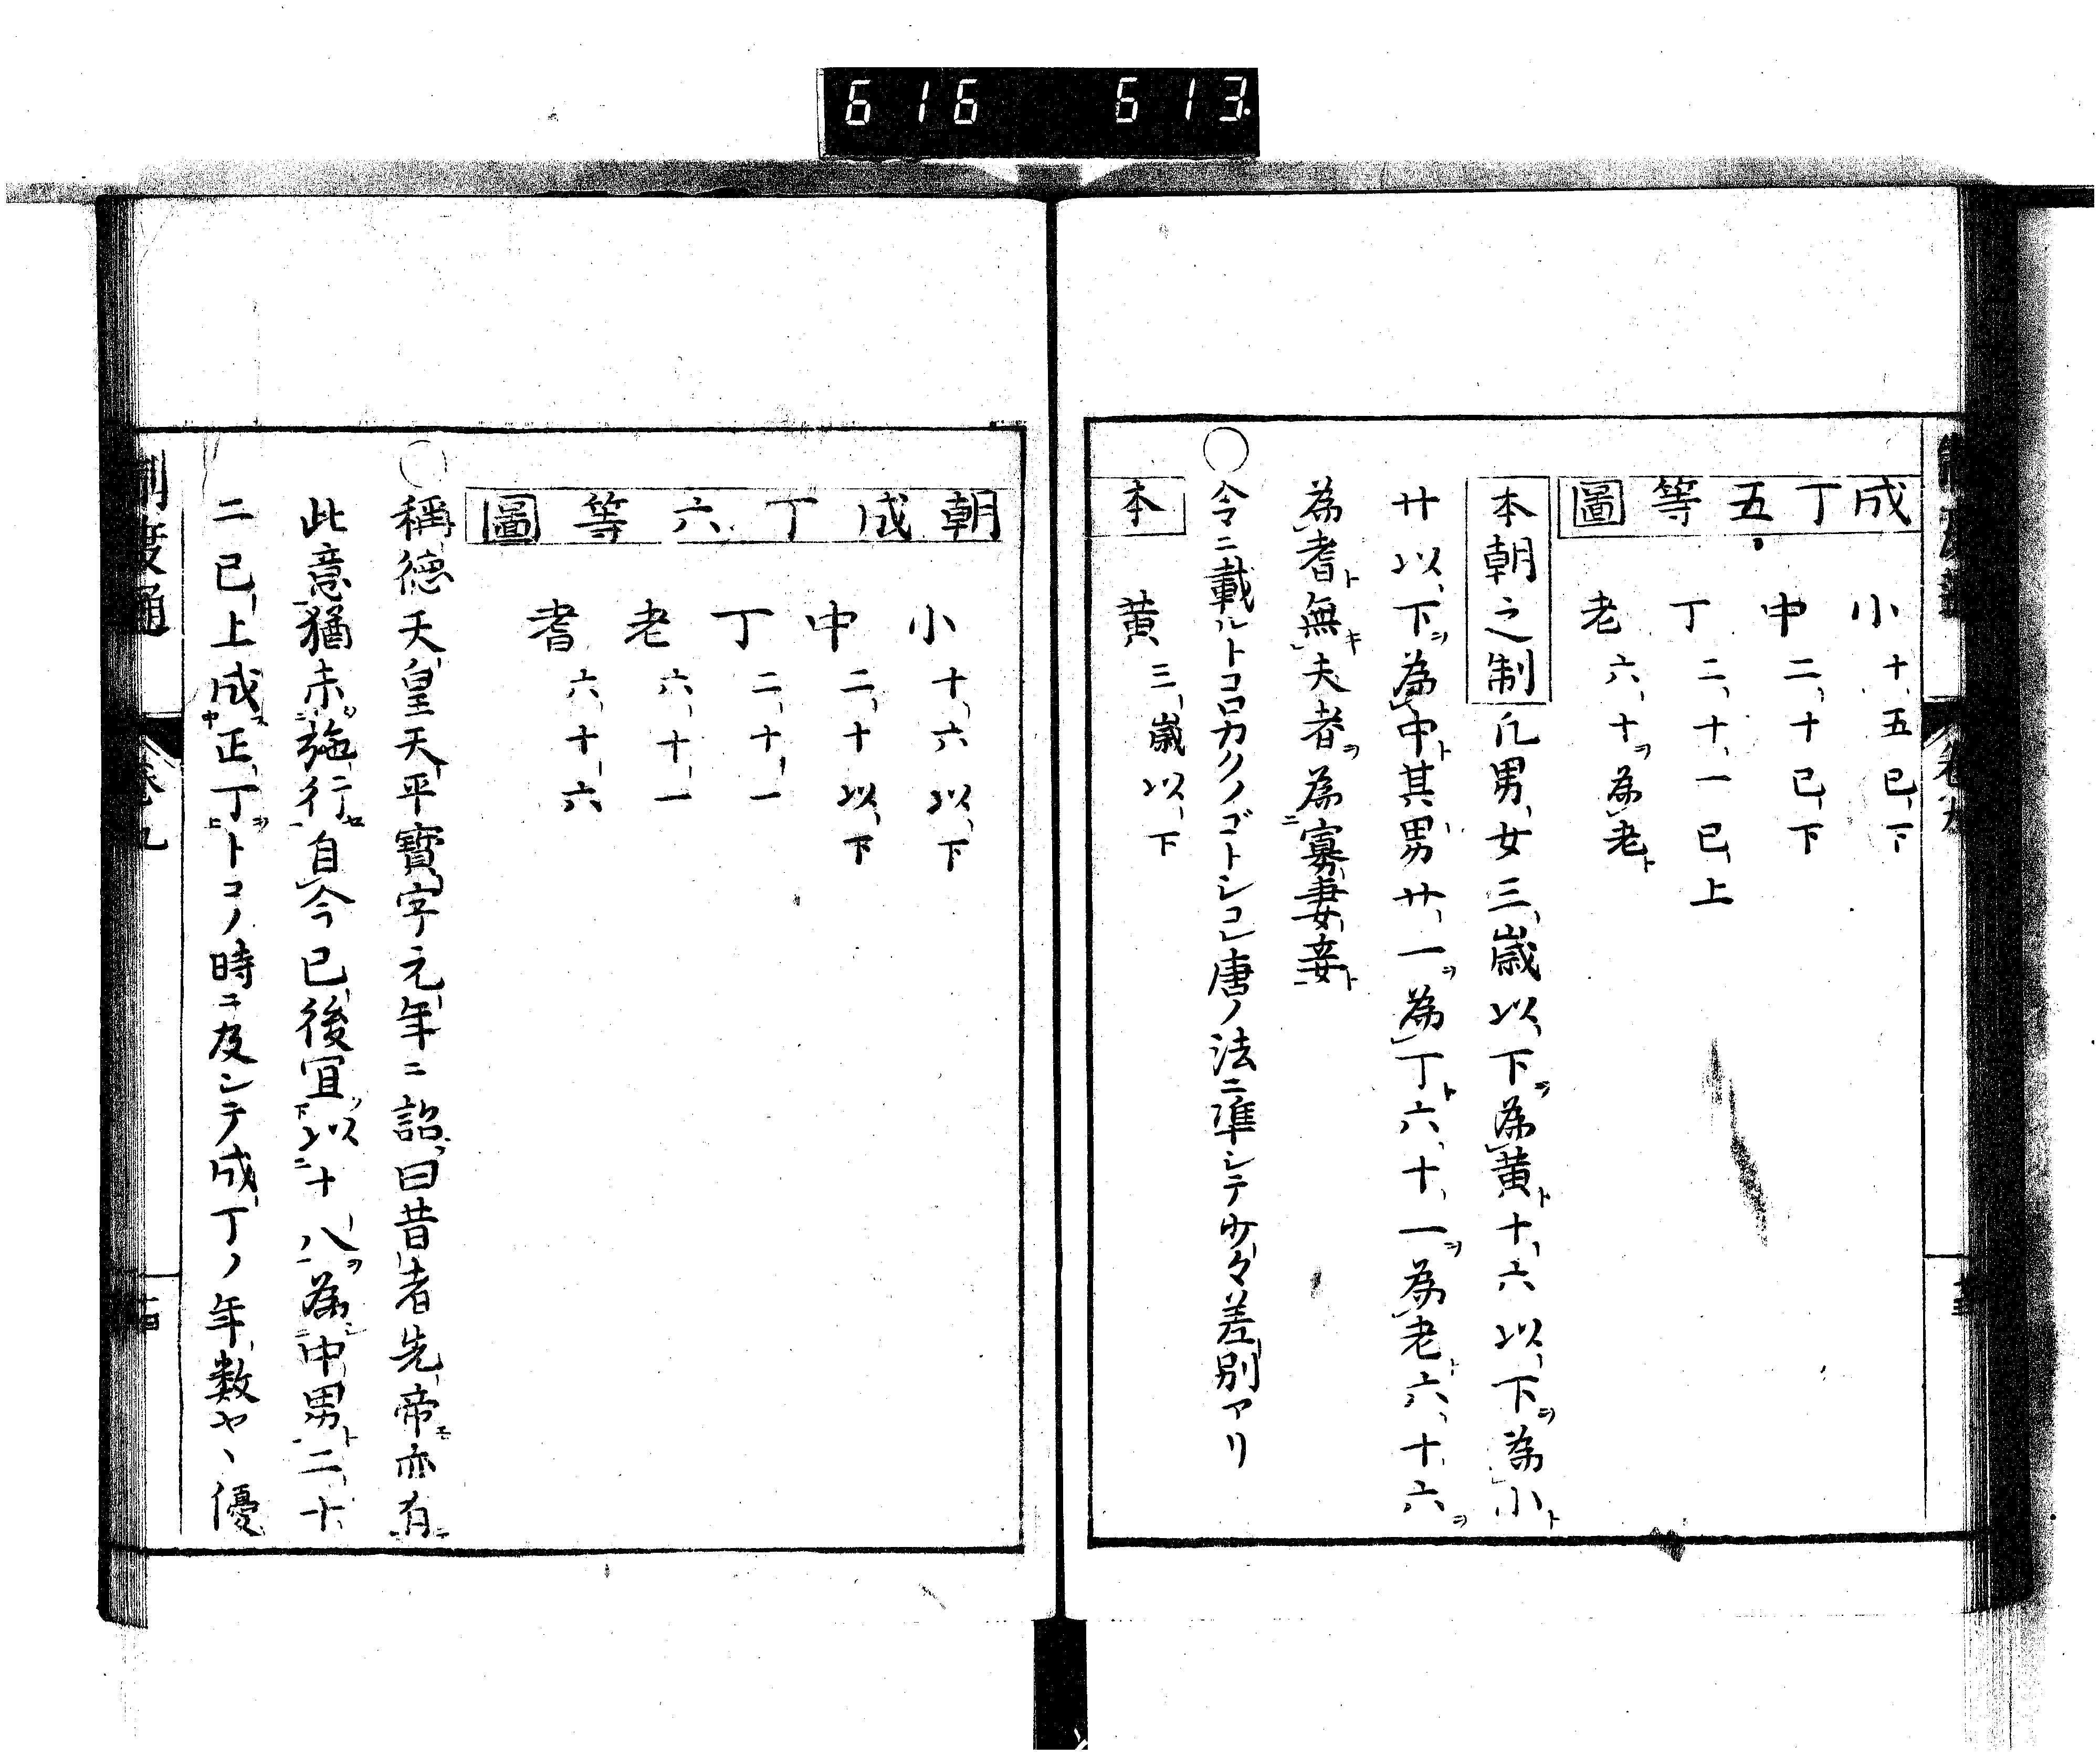 616 613
成丁五等圖
小 十五已下
中 二十已下
丁 二十一已上
老 六十ヲ為老ト
本朝之制 凡男女三歳以下ヲ為黄ト十六以下ヲ為小ト
廿以下ヲ為中ト其男廿一ヲ為丁ト六十一ヲ為老ト六十六ヲ
為耆ト無キ夫者ヲ為寡妻妾ト
○令ニ載ルトコロカクノゴトシコ唐ノ法ニ準シテ少々差別アリ
本
黄 三歳以下
朝成丁六等圖
小 十六以下
中 二十以下
丁 二十一
老 六十一
耆 六十六
○稱德天皇天平寶字元年ニ詔曰昔者先帝モ亦有
此意猶未施行セ自今已後宜以十八ヲ為中男ト二十
二已上成正丁トコノ時ニ及シテ成丁ノ年数ヤヽ優
制度通
卷九